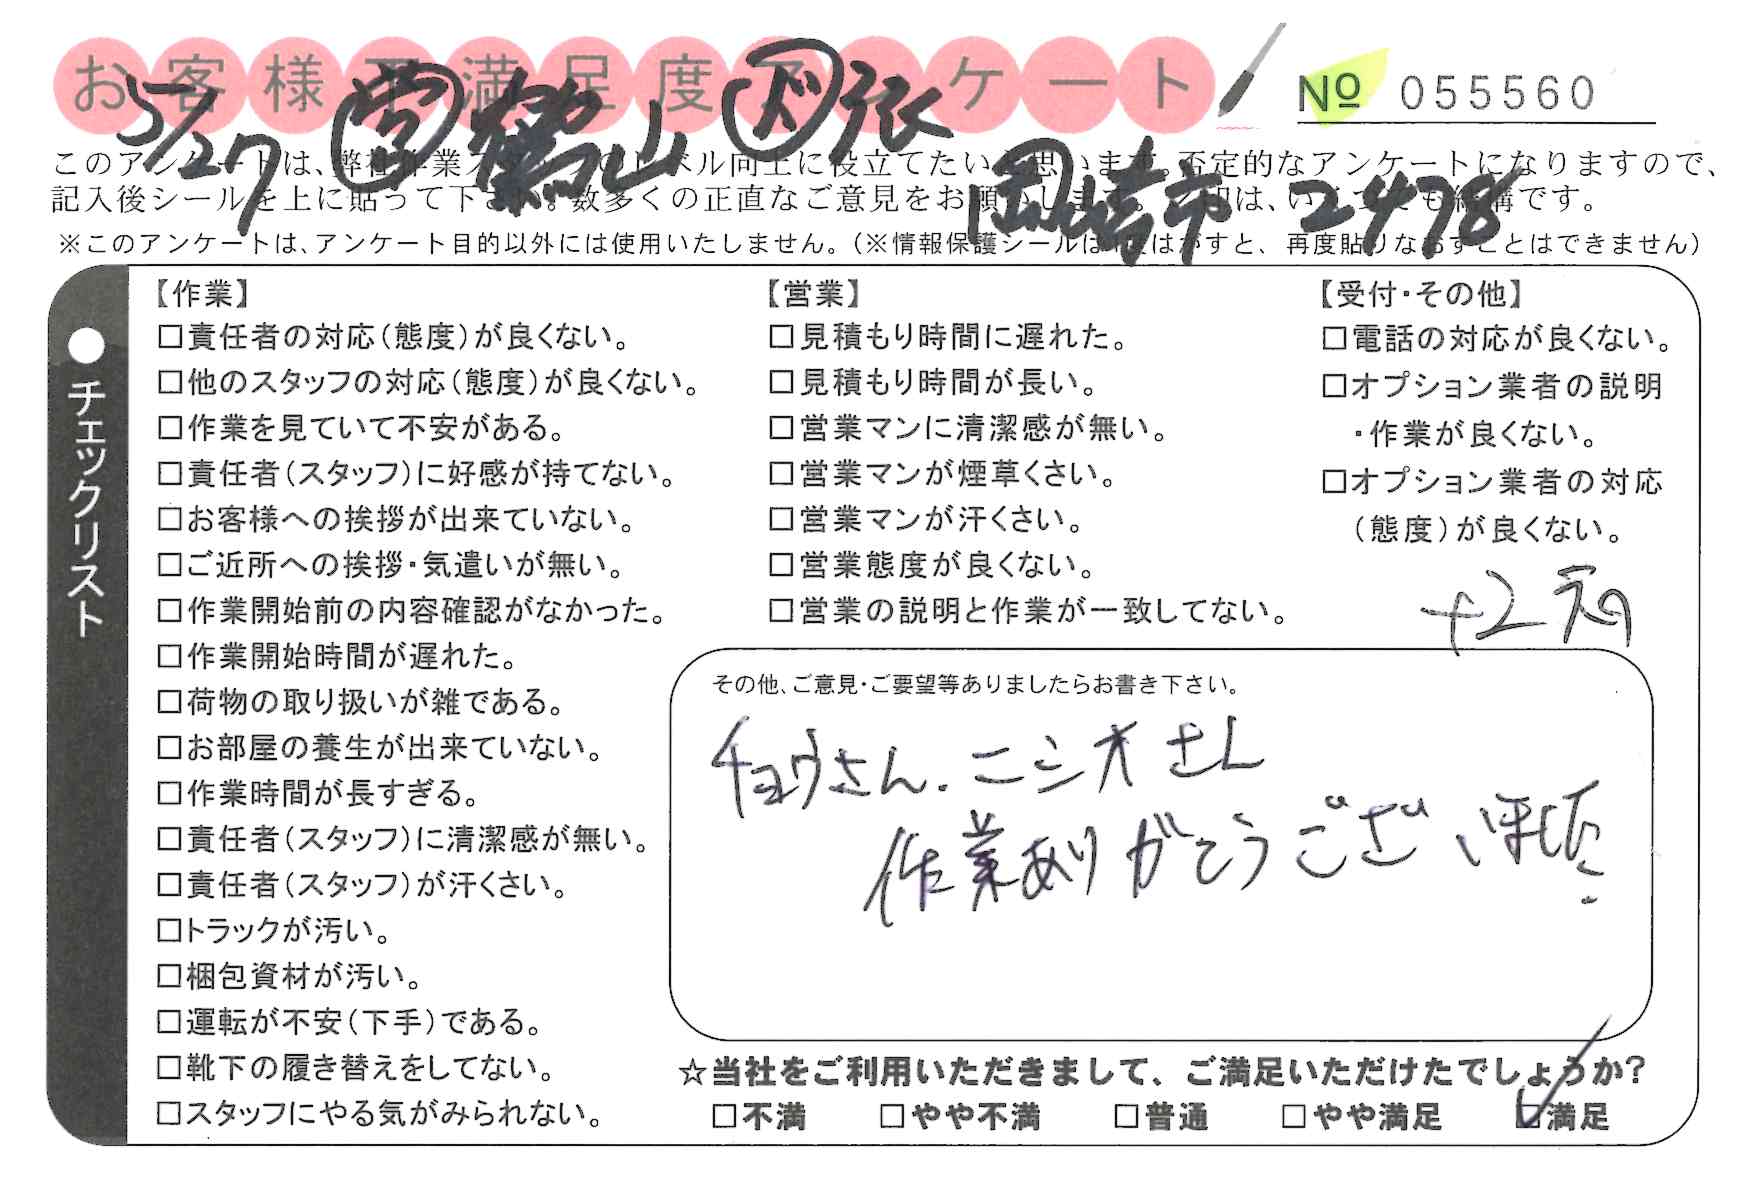 お客様不満足度アンケート
№ 055560
5/27 営 横山 ド 張
岡崎市 2478
このアンケートは、弊社作業スタッフのレベル向上に役立てたいと思います。否定的なアンケートになりますので、
記入後シールを上に貼って下さい。数多くの正直なご意見をお願いします。 は、いくつでも結構です。
※このアンケートは、アンケート目的以外には使用いたしません。(※情報保護シールは1度はがすと、再度貼りなおすことはできません)
●チェックリスト
【作業】
□責任者の対応(態度)が良くない。
□他のスタッフの対応(態度)が良くない。
□作業を見ていて不安がある。
□責任者(スタッフ)に好感が持てない。
□お客様への挨拶が出来ていない。
□ご近所への挨拶・気遣いが無い。
□作業開始前の内容確認がなかった。
□作業開始時間が遅れた。
□荷物の取り扱いが雑である。
□お部屋の養生が出来ていない。
□作業時間が長すぎる。
□責任者(スタッフ)に清潔感が無い。
□責任者(スタッフ)が汗くさい。
□トラックが汚い。
□梱包資材が汚い。
□運転が不安(下手)である。
□靴下の履き替えをしてない。
□スタッフにやる気がみられない。
【営業】
□見積もり時間に遅れた。
□見積もり時間が長い。
□営業マンに清潔感が無い。
□営業マンが煙草くさい。
□営業マンが汗くさい。
□営業態度が良くない。
□営業の説明と作業が一致してない。
【受付・その他】
□電話の対応が良くない。
□オプション業者の説明
・作業が良くない。
□オプション業者の対応
(態度)が良くない。
+2
その他、ご意見・ご要望等ありましたらお書き下さい。
チョウさん、ニシオさん
作業ありがとうございました。
☆当社をご利用いただきまして、ご満足いただけたでしょうか?
□不満 □やや不満 □普通 □やや満足 ☑満足